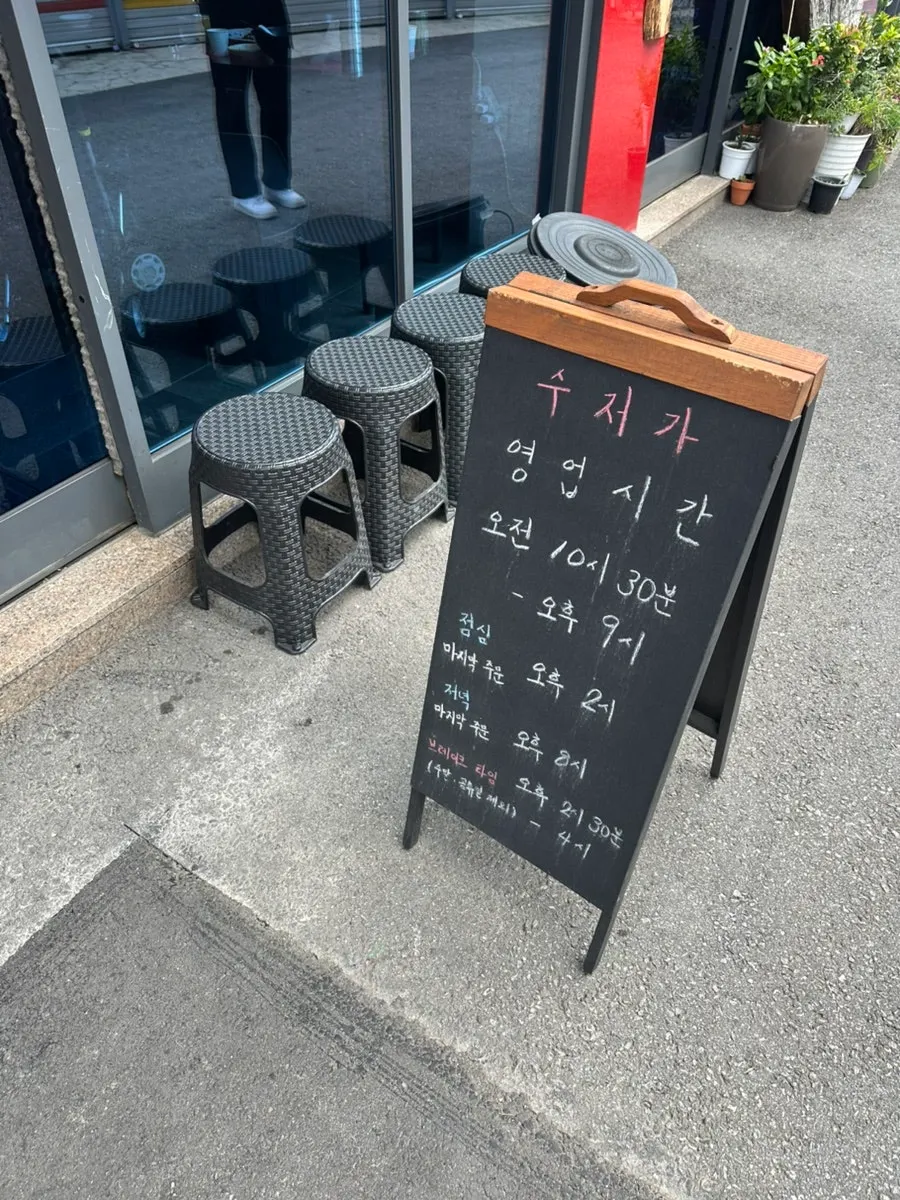 수저가
영업시간
오전 10시 30분
- 오후 9시
점심
마지막 주문 오후 2시
저녁
마지막 주문 오후 8시
브레이크 타임 오후 2시 30분
(주말·공휴일 제외) - 4시